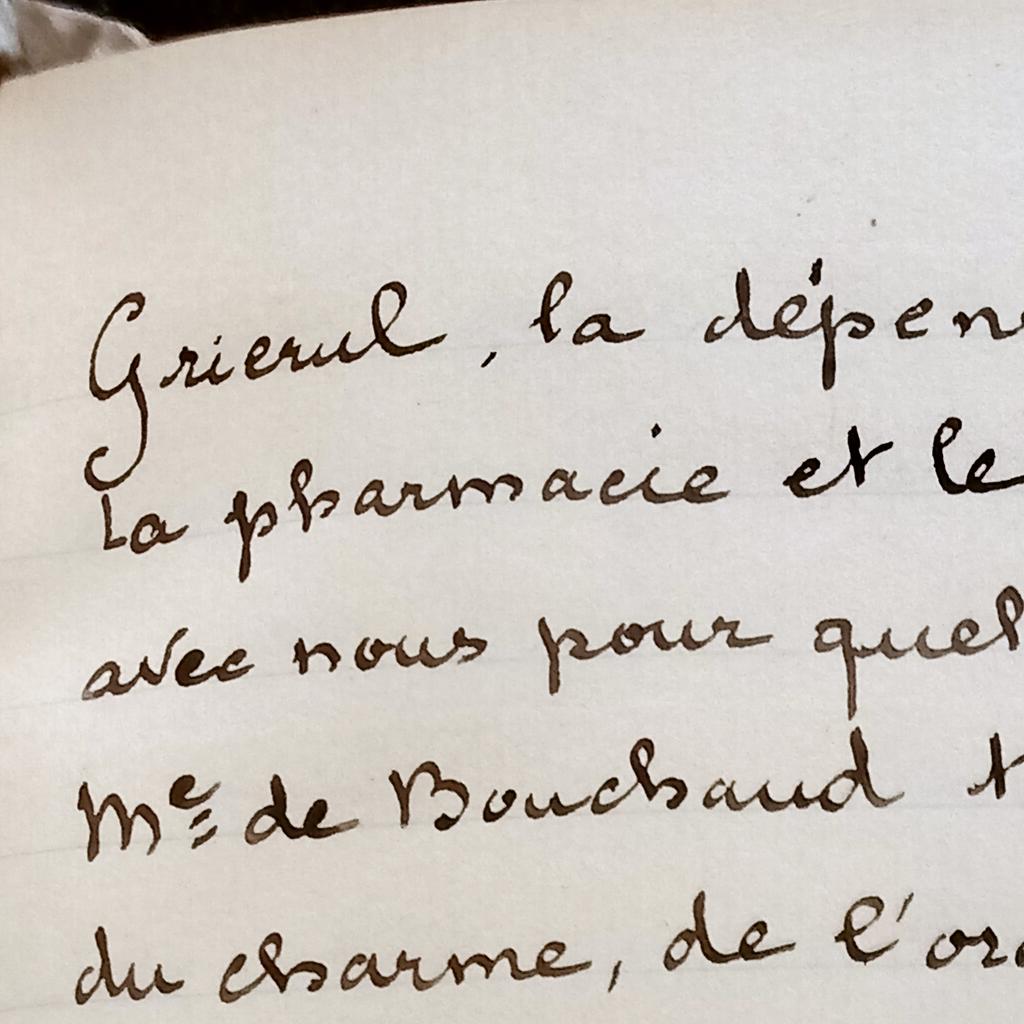 Grierul, la dépen
la pharmacie et le
avec nous pour quel
Me de Bouchaud t
du charme, de l'or